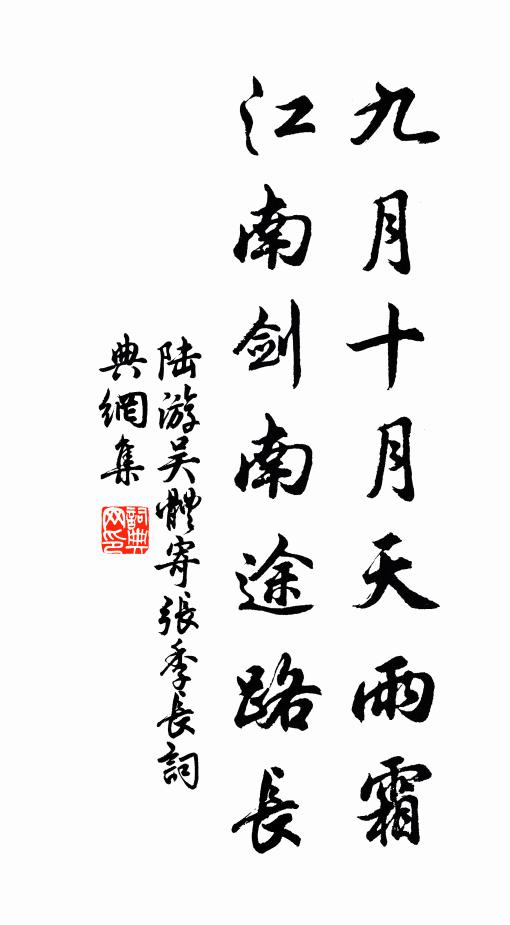 九月十月天雨霜
江南剑南途路長
陆游吴體寄張季長詞
典網集
詞典网印